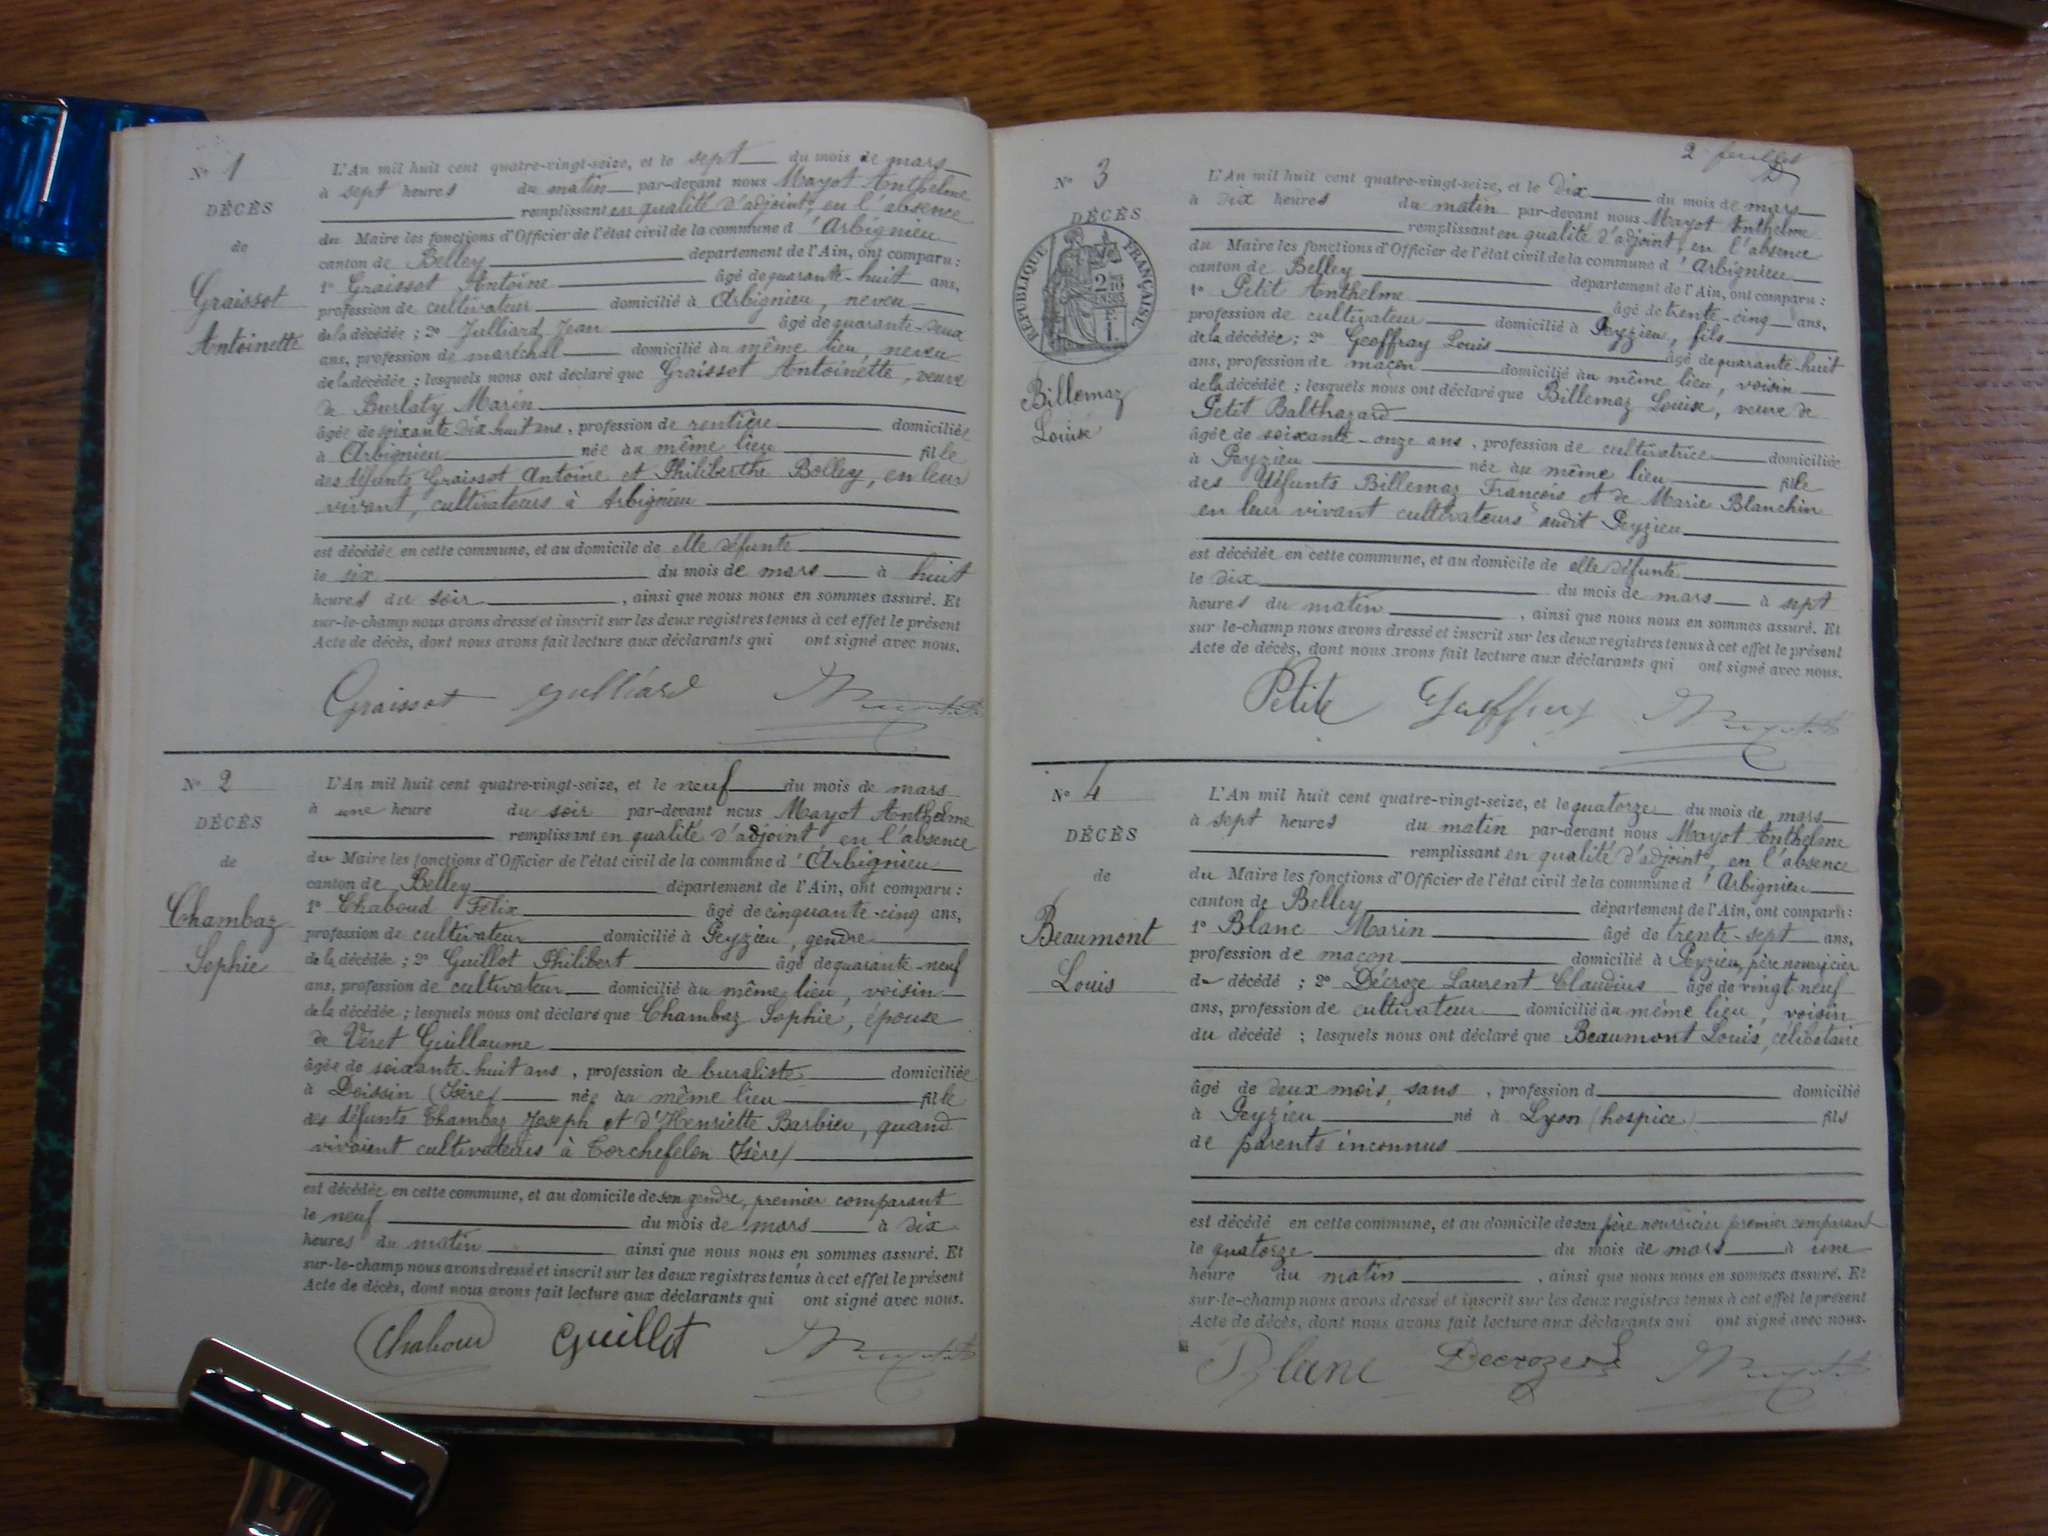 N° 1
DÉCÈS
de
Graissot
Antoinette
L'An mil huit cent quatre-vingt-seize, et le sept du mois de mars
à sept heures du matin par-devant nous Mayot Anthelme
remplissant en qualité d'adjoint, en l'absence
du Maire les fonctions d'Officier de l'état civil de la commune d'Arbignieu
canton de Belley département de l'Ain, ont comparu :
1° Graissot Antoine âgé de quarante-huit ans,
profession de cultivateur domicilié à Arbignieu, neveu
de la décédée ; 2° Julliard Jean âgé de quarante-deux
ans, profession de maréchal domicilié au même lieu, neveu
de la décédée ; lesquels nous ont déclaré que Graissot Antoinette, veuve
de Burlaty Marin
âgée de soixante dix huit ans, profession de rentière domiciliée
à Arbignieu née au même lieu fille
des défunts Graissot Antoine et Philiberthe Bolley, en leur
vivant, cultivateurs à Arbignieu
est décédée en cette commune, et au domicile de elle défunte
le six du mois de mars à huit
heures du soir, ainsi que nous nous en sommes assuré. Et
sur-le-champ nous avons dressé et inscrit sur les deux registres tenus à cet effet le présent
Acte de décès, dont nous avons fait lecture aux déclarants qui ont signé avec nous.
Graissot Julliard
N° 2
DÉCÈS
de
Chambaz
Sophie
L'An mil huit cent quatre-vingt-seize, et le neuf du mois de mars
à une heure du soir par-devant nous Mayot Anthelme
remplissant en qualité d'adjoint, en l'absence
du Maire les fonctions d'Officier de l'état civil de la commune d'Arbignieu
canton de Belley département de l'Ain, ont comparu :
1° Chaboud Félix âgé de cinquante-cinq ans,
profession de cultivateur domicilié à Peyzieu, gendre
de la décédée ; 2° Guillot Philibert âgé de quarante-neuf
ans, profession de cultivateur domicilié au même lieu, voisin
de la décédée ; lesquels nous ont déclaré que Chambaz Sophie, épouse
de Véret Guillaume
âgée de soixante-huit ans, profession de buraliste domiciliée
à Doissin (Isère) née au même lieu fille
des défunts Chambaz Joseph et d'Henriette Barbier, quand
vivaient cultivateurs à Torchefelon (Isère)
est décédée en cette commune, et au domicile de son gendre, premier comparant
le neuf du mois de mars à dix
heures du matin ainsi que nous nous en sommes assuré. Et
sur-le-champ nous avons dressé et inscrit sur les deux registres tenus à cet effet le présent
Acte de décès, dont nous avons fait lecture aux déclarants qui ont signé avec nous.
Chaboud Guillot
2e feuillet
N° 3
DÉCÈS
RÉPUBLIQUE FRANÇAISE
Billemaz
Louise
L'An mil huit cent quatre-vingt-seize, et le dix du mois de mars
à dix heures du matin par-devant nous Mayot Anthelme
remplissant en qualité d'adjoint, en l'absence
du Maire les fonctions d'Officier de l'état civil de la commune d'Arbignieu
canton de Belley département de l'Ain, ont comparu :
1° Petit Anthelme âgé de trente-cinq ans,
profession de cultivateur domicilié à Peyzieu, fils
de la décédée ; 2° Geoffray Louis âgé de quarante-huit
ans, profession de maçon domicilié au même lieu, voisin
de la décédée ; lesquels nous ont déclaré que Billemaz Louise, veuve de
Petit Balthazard
âgée de soixante-onze ans, profession de cultivatrice domiciliée
à Peyzieu née au même lieu fille
des défunts Billemaz François et de Marie Blanchin
en leur vivant cultivateurs audit Peyzieu
est décédée en cette commune, et au domicile de elle défunte
le dix du mois de mars à sept
heures du matin, ainsi que nous nous en sommes assuré. Et
sur le-champ nous avons dressé et inscrit sur les deux registres tenus à cet effet le présent
Acte de décès, dont nous avons fait lecture aux déclarants qui ont signé avec nous.
Petite Geoffray
N° 4
DÉCÈS
de
Beaumont
Louis
L'An mil huit cent quatre-vingt-seize, et le quatorze du mois de mars
à sept heures du matin par-devant nous Mayot Anthelme
remplissant en qualité d'adjoint, en l'absence
du Maire les fonctions d'Officier de l'état civil de la commune d'Arbignieu
canton de Belley département de l'Ain, ont comparu :
1° Blanc Marin âgé de trente-sept ans,
profession de maçon domicilié à Peyzieu, père nourricier
du décédé ; 2° Décroze Laurent Claudius âgé de vingt-neuf
ans, profession de cultivateur domicilié au même lieu, voisin
du décédé ; lesquels nous ont déclaré que Beaumont Louis, célibataire
âgé de deux mois, sans, profession d domicilié
à Peyzieu né à Lyon (hospice) fils
de parents inconnus
est décédé en cette commune, et au domicile de son père nourricier premier comparant
le quatorze du mois de mars à une
heure du matin, ainsi que nous nous en sommes assuré. Et
sur-le-champ nous avons dressé et inscrit sur les deux registres tenus à cet effet le présent
Acte de décès, dont nous avons fait lecture aux déclarants qui ont signé avec nous.
Blanc Decroze